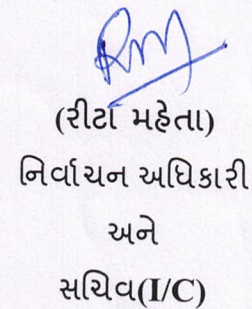 (રીટા મહેતા)
નિર્વાચન અધિકારી
અને
સચિવ(I/C)